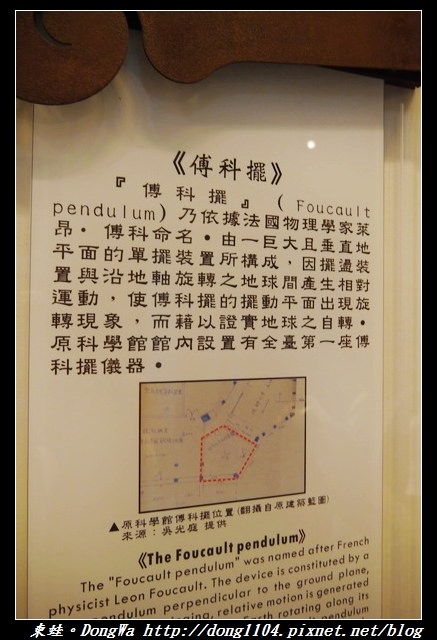 《傅科擺》
『傅科擺』(Foucault
pendulum)乃依據法國物理學家萊
昂。傅科命名。由一巨大且垂直地
平面的單擺裝置所構成，因擺盪裝
置與沿地軸旋轉之地球間產生相對
運動，使傅科擺的擺動平面出現旋
轉現象，而藉以證實地球之自轉。
原科學館館內設置有全臺第一座傅
科擺儀器。
▲原科學館傅科擺位置(翻攝自原建築藍圖)
來源：吳光庭 提供
《The Foucault pendulum》
The "Foucault pendulum" was named after French
physicist Leon Foucault. The device is constituted by a
pendulum perpendicular to the ground plane,
relative motion is generated
Earth rotating along its
pendulum
東蛙。DongWa http://dong1104.pixnet.net/blog